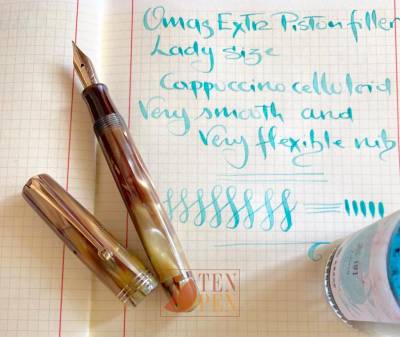 Omas Extra Piston filler
Lady size
Cappuccino celluloid
Very smooth and
Very flexible nib
TEN
PEN